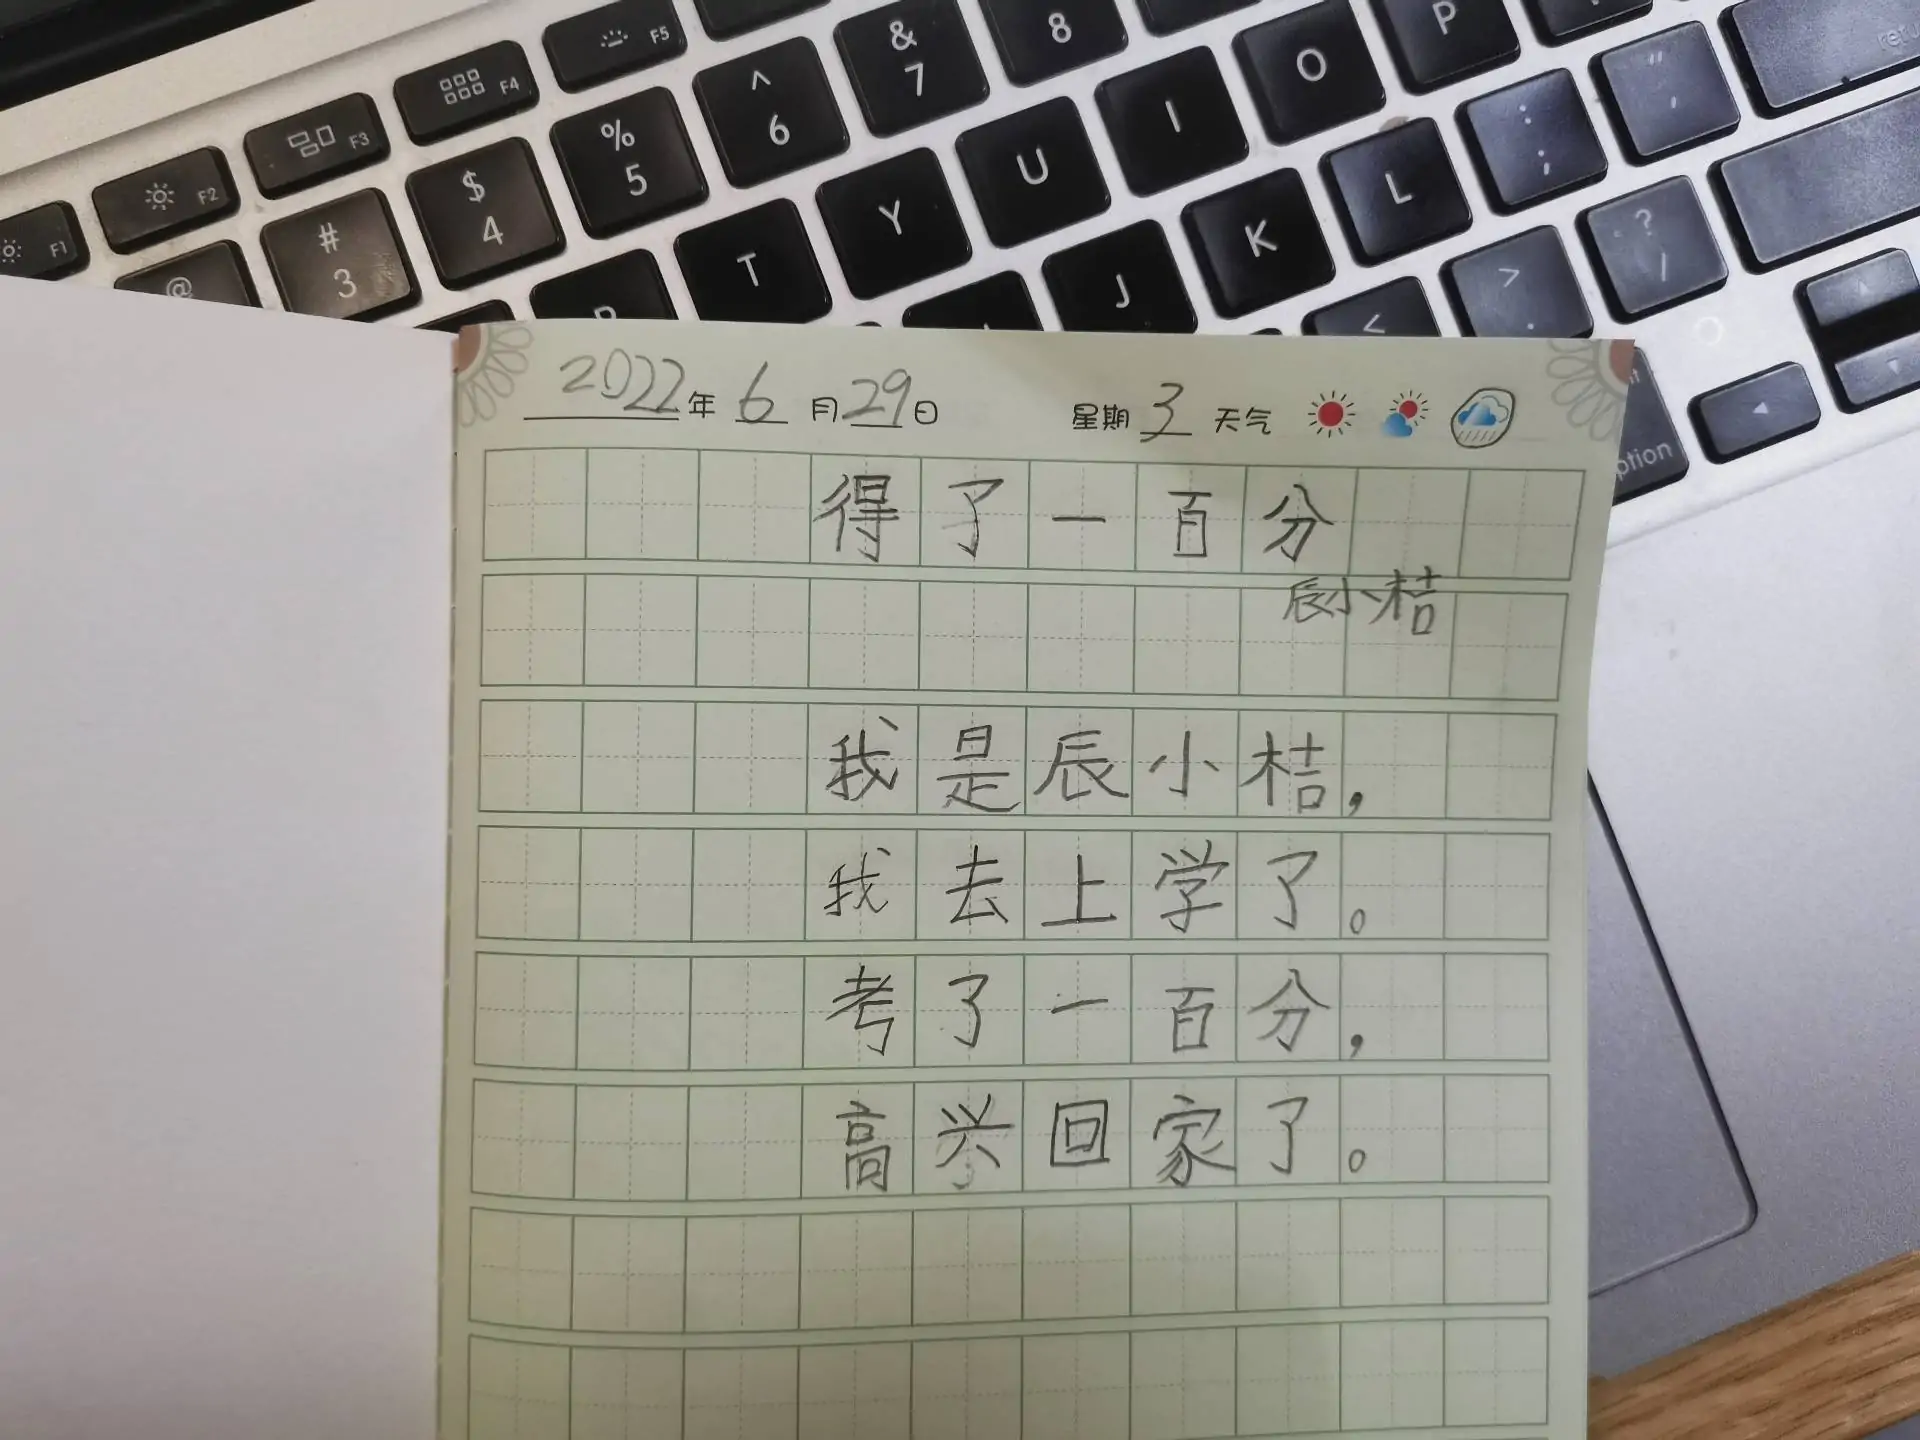 F5
& 7
8
P
F4
^ 6
O
" '
F3
% 5
I
: ;
F2
$ 4
U
L
? /
F1
# 3
Y
K
> .
@
T
J
<
2022年 6 月 29 日 星期 3 天气
ption
得了一百分
辰小桔
我是辰小桔,
我去上学了。
考了一百分,
高兴回家了。